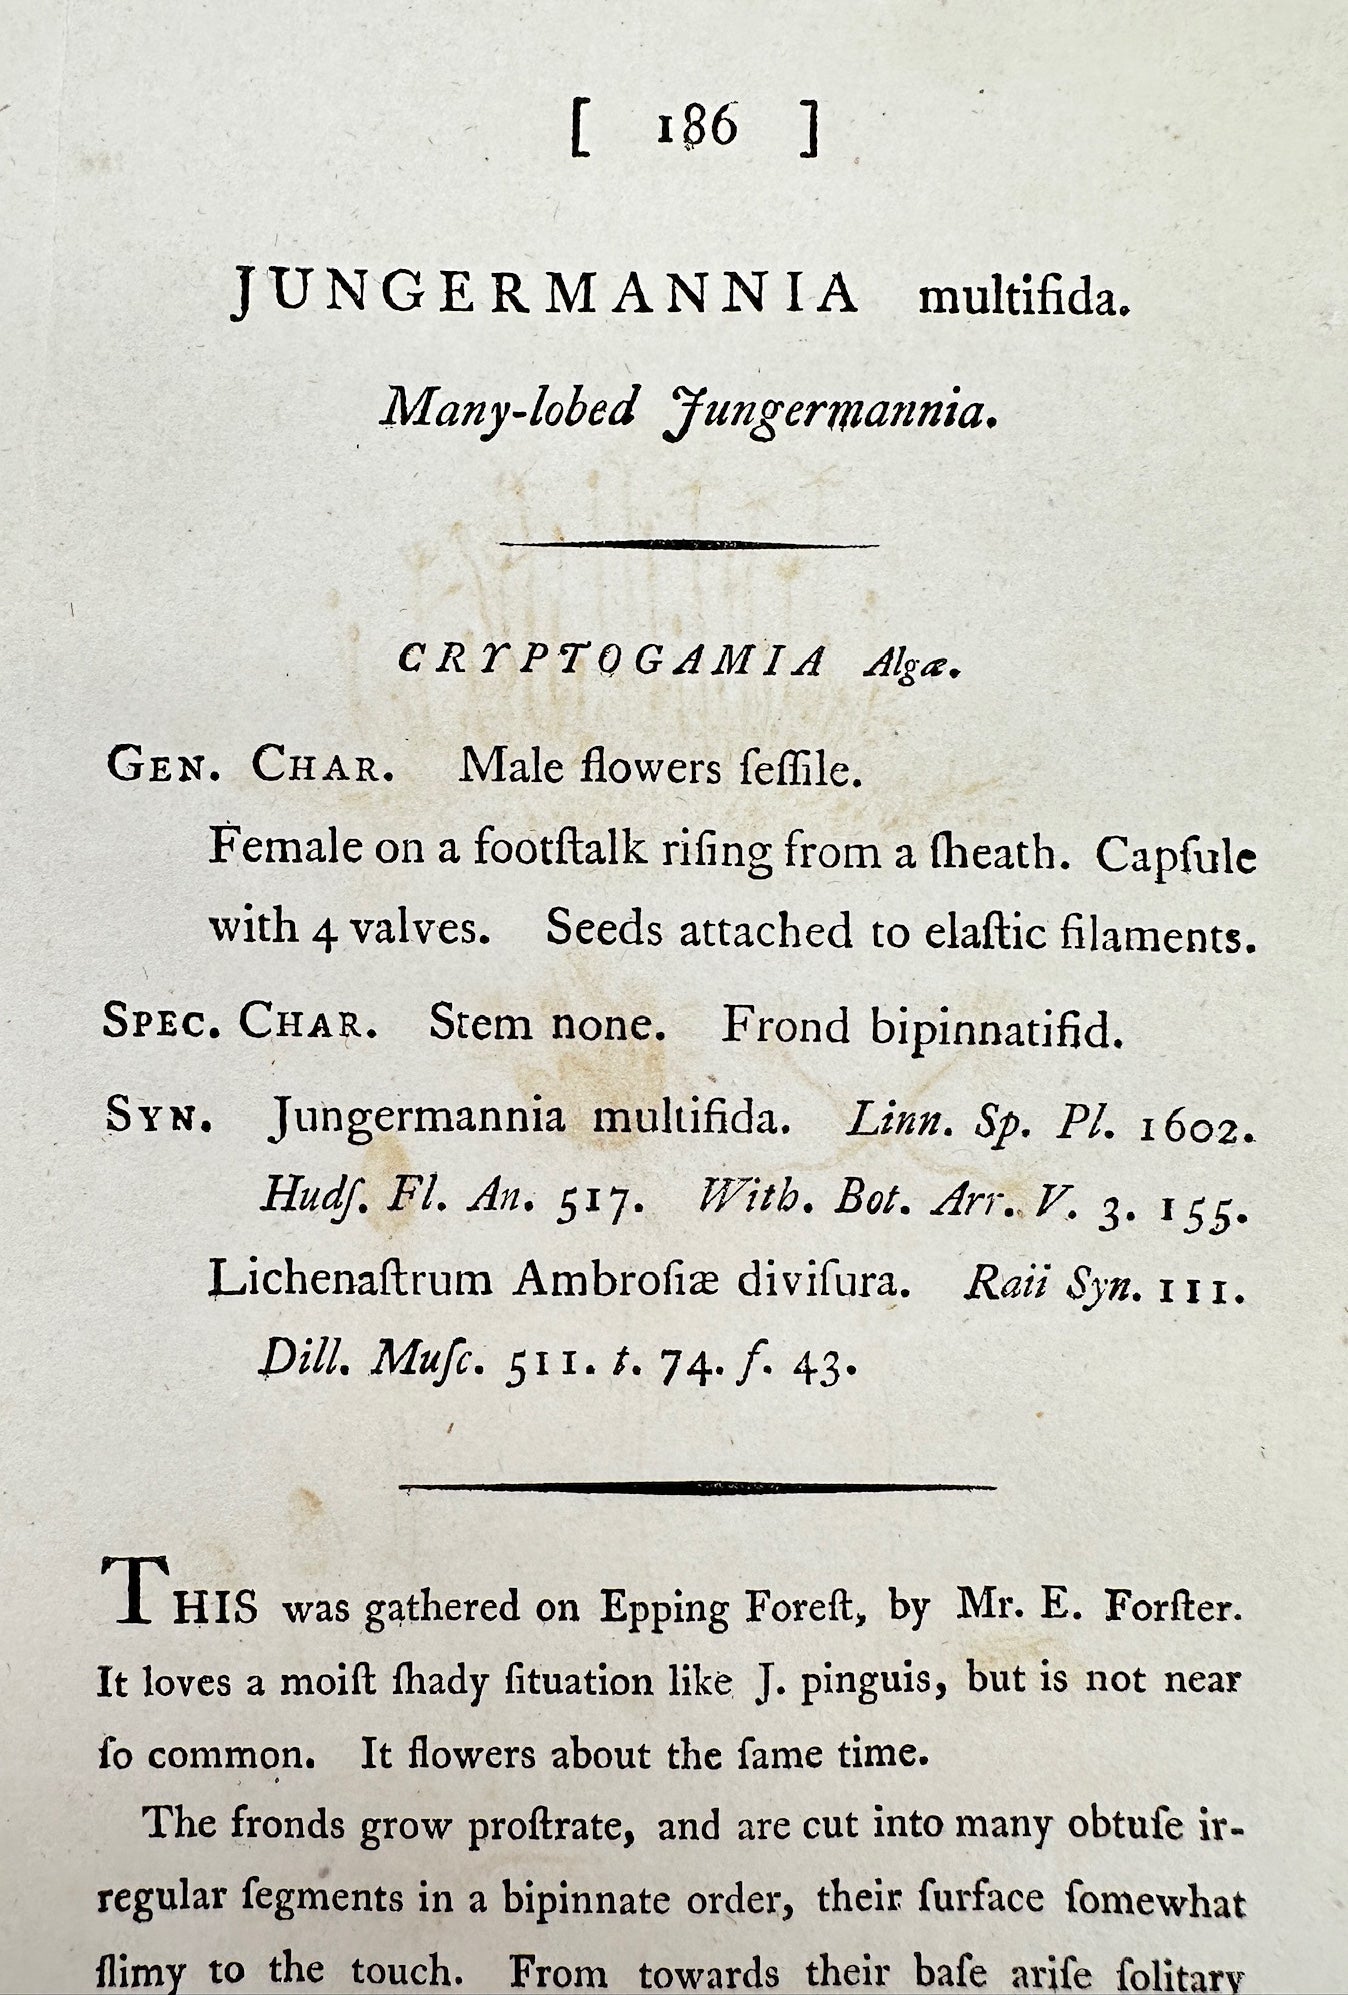 [ 186 ]
JUNGERMANNIA multifida.
Many-lobed Jungermannia.
CRYPTOGAMIA Algæ.
GEN. CHAR. Male flowers ſeſſile.
Female on a footſtalk riſing from a ſheath. Capſule
with 4 valves. Seeds attached to elaſtic filaments.
SPEC. CHAR. Stem none. Frond bipinnatifid.
SYN. Jungermannia multifida. Linn. Sp. Pl. 1602.
Hudſ. Fl. An. 517. With. Bot. Arr. V. 3. 155.
Lichenaſtrum Ambroſiæ diviſura. Raii Syn. 111.
Dill. Muſc. 511. t. 74. f. 43.
THIS was gathered on Epping Foreſt, by Mr. E. Forſter.
It loves a moiſt ſhady ſituation like J. pinguis, but is not near
ſo common. It flowers about the ſame time.
The fronds grow proſtrate, and are cut into many obtuſe ir-
regular ſegments in a bipinnate order, their ſurface ſomewhat
ſlimy to the touch. From towards their baſe ariſe ſolitary